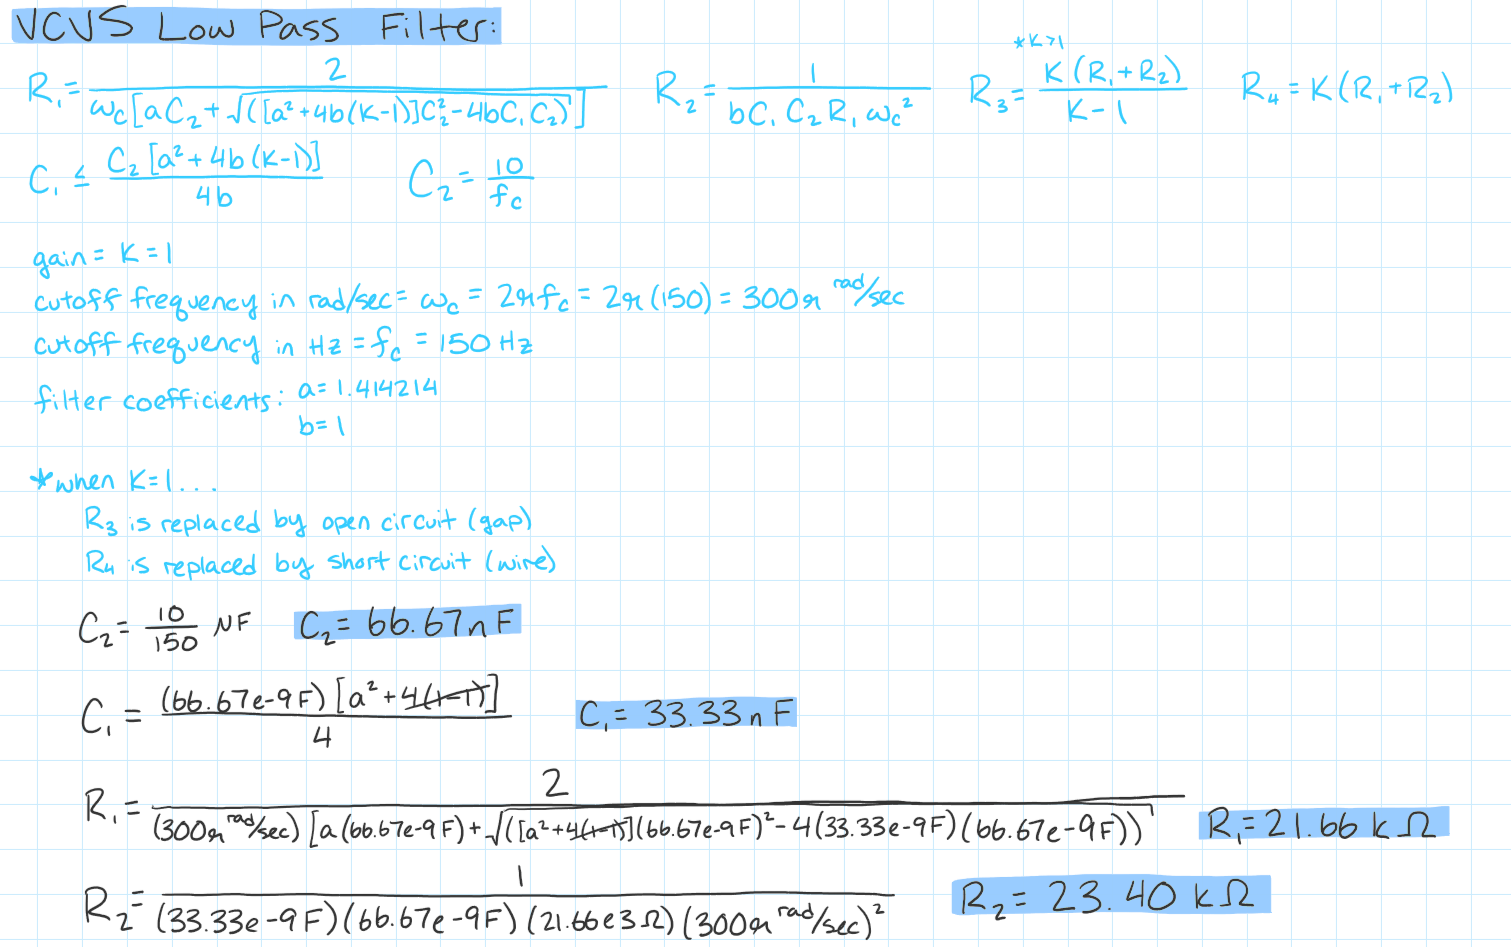 VCVS Low Pass Filter:
R₁ = 2 / ω_c[aC₂ + √([a² + 4b(K-1)]C₂² - 4bC₁C₂)] R₂ = 1 / bC₁C₂R₁ω_c² R₃ = K(R₁+R₂) / K-1 *K>1 R₄ = K(R₁+R₂)
C₁ ≤ C₂[a² + 4b(K-1)] / 4b C₂ = 10 / f_c
gain = K = 1
cutoff frequency in rad/sec = ω_c = 2πf_c = 2π(150) = 300π rad/sec
cutoff frequency in Hz = f_c = 150 Hz
filter coefficients: a = 1.414214
b = 1
*when K=1...
R₃ is replaced by open circuit (gap)
R₄ is replaced by short circuit (wire)
C₂ = 10 / 150 μF C₂ = 66.67nF
C₁ = (66.67e-9F)[a² + 4(1-1)] / 4 C₁ = 33.33nF
R₁ = 2 / (300π rad/sec)[a(66.67e-9F) + √([a²+4(1-1)](66.67e-9F)² - 4(33.33e-9F)(66.67e-9F)) R₁ = 21.66 kΩ
R₂ = 1 / (33.33e-9F)(66.67e-9F)(21.66e3Ω)(300π rad/sec)² R₂ = 23.40 kΩ